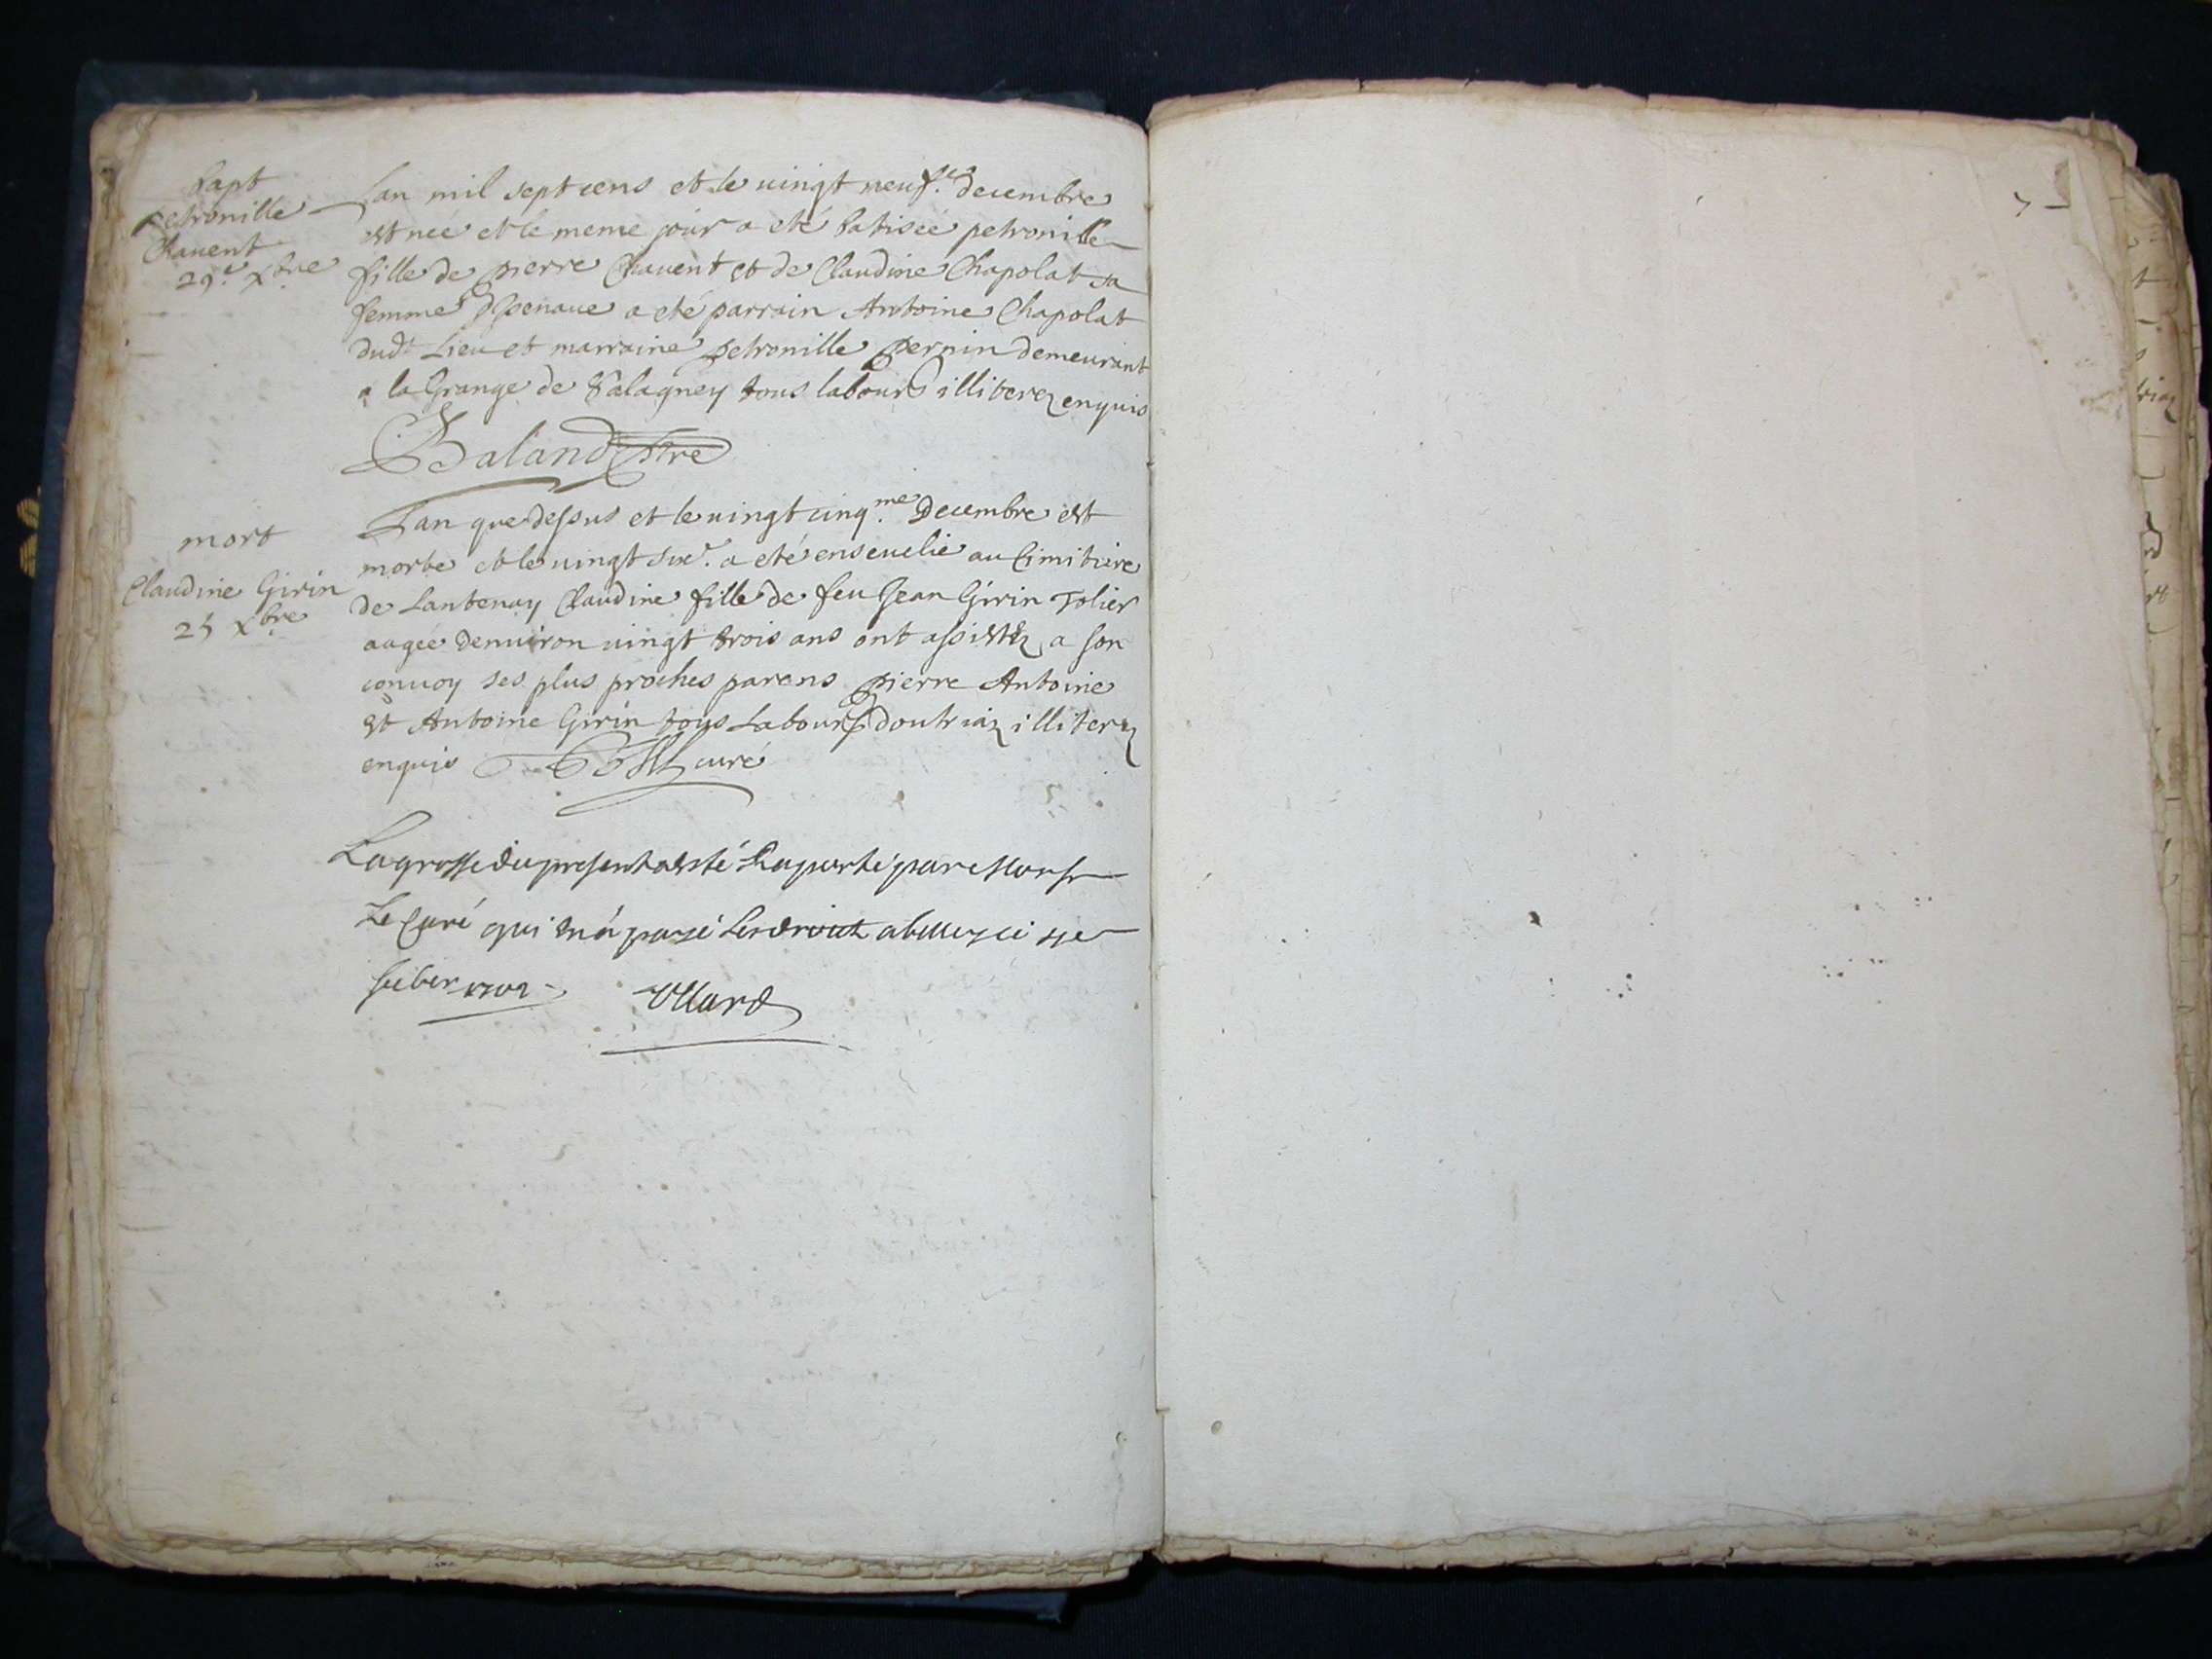 Bapt
petronille
Chauent
29.e Xbre
Lan mil sept cens et le uingt neuf.e decembre
est née et le meme jour a eté batisée petronille
fille de pierre Chauent et de Claudine Chapolat sa
femme a eté parrain Antoine Chapolat
dud.t Lieu et marraine petronille pernin demeurant
a la Grange de Valagney tous labours illiterez enquis
Baland ptre
mort
Claudine Girin
25 Xbre
Lan que dessus et le uingt cinq.me Decembre est
morte et le uingt six.e a eté enseuelie au Cimitiere
de Lantenay Claudine fille de feu Jean Girin Tolier
aagée denuiron uingt trois ans ont assistéz a son
conuoy ses plus proches parens pierre Antoine
et Antoine Girin tous Labours doutriaz illiterez
enquis curé
La grosse du present a esté Raporté par Monsr
Le Curé qui m'a payé Les droict ce
1702